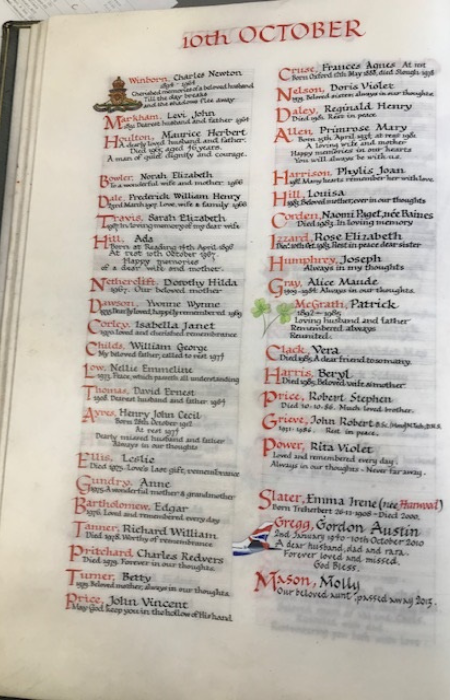 10th OCTOBER
Winborn, Charles Newton
Cherished memories of a beloved husband
Till the day breaks
and the shadows flee away
Markham, Levi John
Dearest husband and father
Houlton, Maurice Herbert
A dearly loved husband and father.
Died 1963 aged 76 years.
A man of quiet dignity and courage.
Bowler, Norah Elizabeth
To a wonderful wife and mother. 1966
Dale, Frederick William Henry
love, wife & family 1966
Travis, Sarah Elizabeth
In loving memory of my dear wife
Hill, Ada
Born at Reading 19th April 1898
At rest 10th October 1967.
Happy memories
of a dear wife and mother.
Nethercleft, Dorothy Hilda
1967. Our beloved mother.
Dawson, Yvonne Wynne
Dearly loved, happily remembered
Corley, Isabella Janet
loved and cherished remembrance
Childs, William George
My beloved father, called to rest 1971
Low, Nellie Emmeline
1973. Peace, which passeth all understanding
Thomas, David Ernest
Dearest husband and father
Ayres, Henry John Cecil
Born 28th October
At rest 1971
Dearly missed husband and father
Always in our thoughts
Ellis, Leslie
Died 1975. Love's last gift, remembrance
Gundry, Anne
1975. A wonderful mother & grandmother
Bartholomew, Edgar
1976. Loved and remembered every day
Tanner, Richard William
Died 1978. Worthy of remembrance
Pritchard, Charles Redvers
Died 1979. Forever in our thoughts.
Turner, Betty
Beloved mother, always in our thoughts.
Price, John Vincent
May God keep you in the hollow of His hand
Cruse, Frances Agnes At rest
Born Oxford 17th May 1888, died Slough 1978
Nelson, Doris Violet
Beloved sister, always in our thoughts.
Daley, Reginald Henry
Died 1981. Rest in peace
Allen, Primrose Mary
Born 15th April 1937, at rest 1981
A loving wife and mother
Happy memories in our hearts
You will always be with us.
Harrison, Phylis Joan
Many hearts remember her with love
Hill, Louisa
Beloved mother, ever in our thoughts
Corden, Naomi Paget, née Baines
Died 1983. In loving memory
Izzard, Rose Elizabeth
Rest in peace dear sister
Humphrey, Joseph
Always in my thoughts
Gray, Alice Maude
1909-1984. Always in our thoughts.
McGrath, Patrick
1892 - 1985
Loving husband and father
Remembered always
Reunited.
Clack, Vera
Died 1985. A dear friend to so many.
Harris, Beryl
Died 1985. Beloved wife & mother
Price, Robert Stephen
Died 10.10.86. Much loved brother.
Grieve, John Robert
1931-1986. Rest in peace.
Power, Rita Violet
Loved and remembered every day.
Always in our thoughts - Never far away.
Slater, Emma Irene (née Harwood)
Born Treherbert 26-11-1908 - Died 2000.
Gregg, Gordon Austin
2nd January 1940 - 10th October 2010
A dear husband, dad and rara.
Forever loved and missed.
God Bless.
Mason, Molly
Our beloved aunt, passed away 2013.